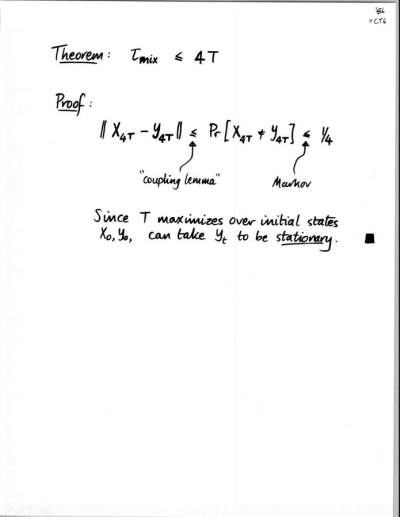 Theorem: τmix ≤ 4T
Proof:
‖X4T − Y4T‖ ≤ Pr[X4T ≠ Y4T] ≤ 1/4
"coupling lemma" Markov
Since T maximizes over initial states
X0, Y0, can take Yt to be stationary. ■